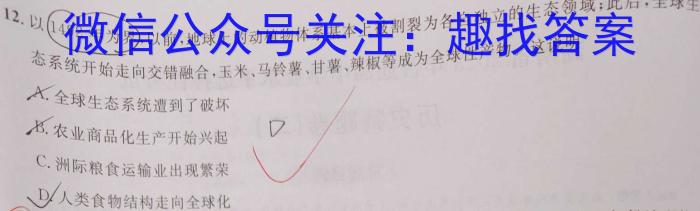 微信公众号关注：趣找答案
12. 以149 为界 以前 地球上的动植物体系基本上被割裂为各 独立的生态领域；此后，全球生
态系统开始走向交错融合，玉米、马铃薯、甘薯、辣椒等成为全球性产物。这说明
A. 全球生态系统遭到了破坏
B. 农业商品化生产开始兴起
C. 洲际粮食运输业出现繁荣
D. 人类食物结构走向全球化
D